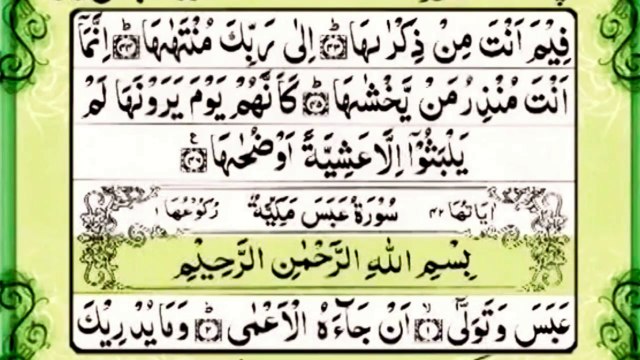 فِيْمَ اَنْتَ مِنْ ذِكْرٰىهَا ﴿۴۳﴾ اِلٰى رَبِّكَ مُنْتَهٰىهَا ﴿۴۴﴾ اِنَّمَاۤ
اَنْتَ مُنْذِرُ مَنْ يَّخْشٰىهَا ﴿۴۵﴾ كَاَنَّهُمْ يَوْمَ يَرَوْنَهَا لَمْ
يَلْبَثُوْۤا اِلَّا عَشِيَّةً اَوْ ضُحٰىهَا ﴿۴۶﴾ ع
اٰيَاتُهَا ۴۲ سُوْرَةُ عَبَسَ مَكِّيَّةٌ رُكُوْعُهَا ۱
بِسْمِ اللّٰهِ الرَّحْمٰنِ الرَّحِيْمِ
عَبَسَ وَتَوَلّٰىۤ ﴿۱﴾ اَنْ جَآءَهُ الْاَعْمٰى ﴿۲﴾ وَمَا يُدْرِيْكَ